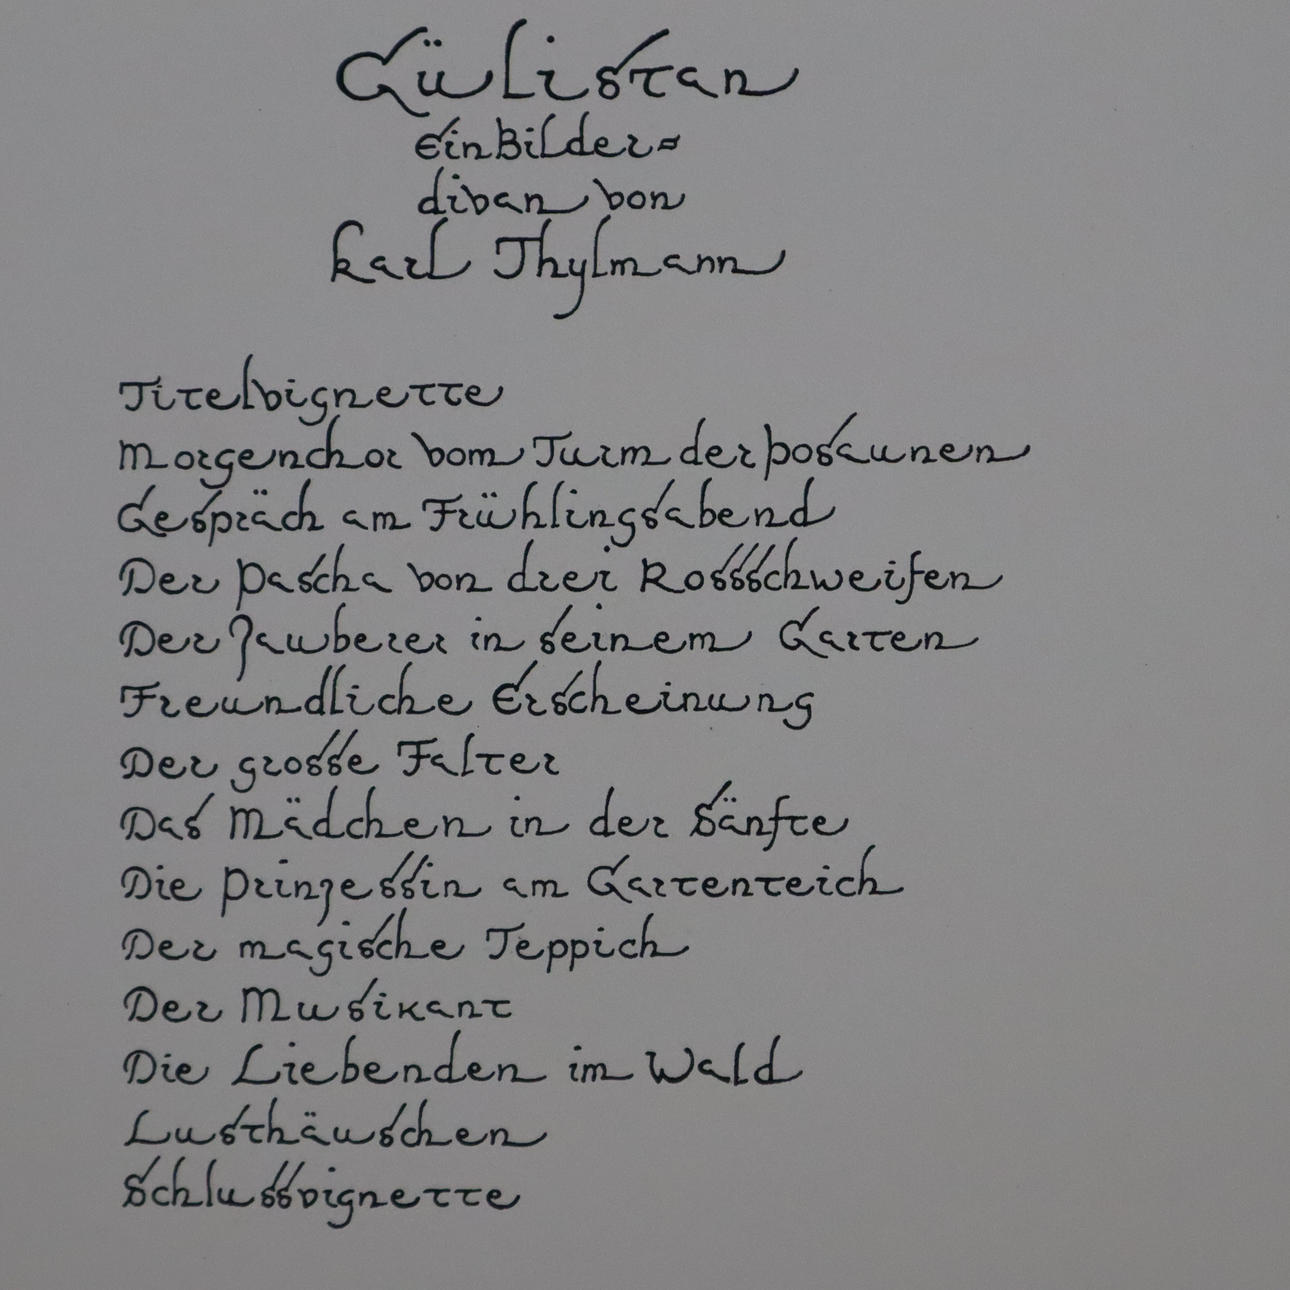 Gülistan
Ein Bilder=
divan von
Karl Thylmann
Titelvignette
Morgenchor vom Turm der Posaunen
Gespräch am Frühlingsabend
Der Pascha von drei Rossschweifen
Der Zauberer in seinem Garten
Freundliche Erscheinung
Der grosse Falter
Das Mädchen in der Sänfte
Die Prinzessin am Gartenteich
Der magische Teppich
Der Musikant
Die Liebenden im Wald
Lusthäuschen
Schlussvignette